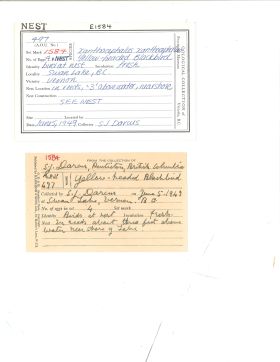 NEST E1584
497
(A.O.U. No.)
Set Mark 1584 Xanthocephalus xanthocephalus
No. of Eggs 4 + NEST Yellow-headed Blackbird
Identity bird at nest Incubation Fresh
Locality Swan Lake, BC
Vernon
New Location in reeds, ~3' above water, nearshore
New Construction
SEE NEST
Date June 5, 1949 Collector S J Darcus
1584
FROM THE COLLECTION OF
S.J. Darcus, Penticton, British Columbia
497 Yellow-headed Blackbird
Collected by S.J. Darcus on June 5-1949
at Swan Lake, Vernon, B.C.
No. of eggs in set 4 Set mark
Identity Birds at nest Incubation Fresh
Nest In reeds about three feet above
water near shore of lake.